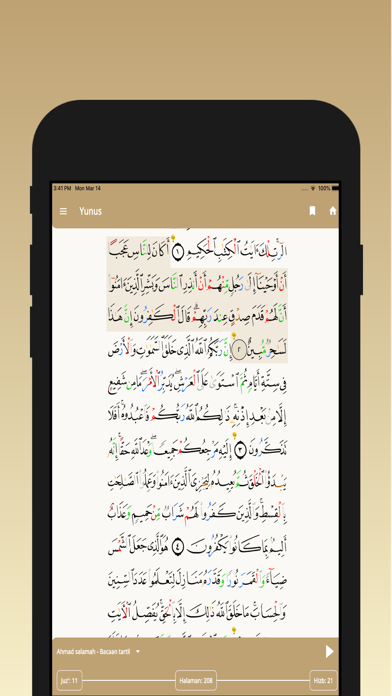 3:41 PM Mon Mar 14
100%
Yunus
الٓر ۚ تِلْكَ ءَايَٰتُ ٱلْكِتَٰبِ ٱلْحَكِيمِ ١ أَكَانَ لِلنَّاسِ عَجَبًا
أَنْ أَوْحَيْنَآ إِلَىٰ رَجُلٍ مِّنْهُمْ أَنْ أَنذِرِ ٱلنَّاسَ وَبَشِّرِ ٱلَّذِينَ ءَامَنُوٓا۟
أَنَّ لَهُمْ قَدَمَ صِدْقٍ عِندَ رَبِّهِمْ ۗ قَالَ ٱلْكَٰفِرُونَ إِنَّ هَٰذَا
لَسَٰحِرٌ مُّبِينٌ ٢ إِنَّ رَبَّكُمُ ٱللَّهُ ٱلَّذِى خَلَقَ ٱلسَّمَٰوَٰتِ وَٱلْأَرْضَ
فِى سِتَّةِ أَيَّامٍ ثُمَّ ٱسْتَوَىٰ عَلَى ٱلْعَرْشِ ۖ يُدَبِّرُ ٱلْأَمْرَ ۖ مَا مِن شَفِيعٍ
إِلَّا مِنۢ بَعْدِ إِذْنِهِۦ ۚ ذَٰلِكُمُ ٱللَّهُ رَبُّكُمْ فَٱعْبُدُوهُ ۚ أَفَلَا
تَذَكَّرُونَ ٣ إِلَيْهِ مَرْجِعُكُمْ جَمِيعًا ۖ وَعْدَ ٱللَّهِ حَقًّا ۚ إِنَّهُۥ
يَبْدَؤُا۟ ٱلْخَلْقَ ثُمَّ يُعِيدُهُۥ لِيَجْزِىَ ٱلَّذِينَ ءَامَنُوا۟ وَعَمِلُوا۟ ٱلصَّٰلِحَٰتِ
بِٱلْقِسْطِ ۚ وَٱلَّذِينَ كَفَرُوا۟ لَهُمْ شَرَابٌ مِّنْ حَمِيمٍ وَعَذَابٌ
أَلِيمٌۢ بِمَا كَانُوا۟ يَكْفُرُونَ ٤ هُوَ ٱلَّذِى جَعَلَ ٱلشَّمْسَ
ضِيَآءً وَٱلْقَمَرَ نُورًا وَقَدَّرَهُۥ مَنَازِلَ لِتَعْلَمُوا۟ عَدَدَ ٱلسِّنِينَ
وَٱلْحِسَابَ ۚ مَا خَلَقَ ٱللَّهُ ذَٰلِكَ إِلَّا بِٱلْحَقِّ ۚ يُفَصِّلُ ٱلْءَايَٰتِ
Ahmad salamah - Bacaan tartil
Juz': 11
Halaman: 208
Hizb: 21